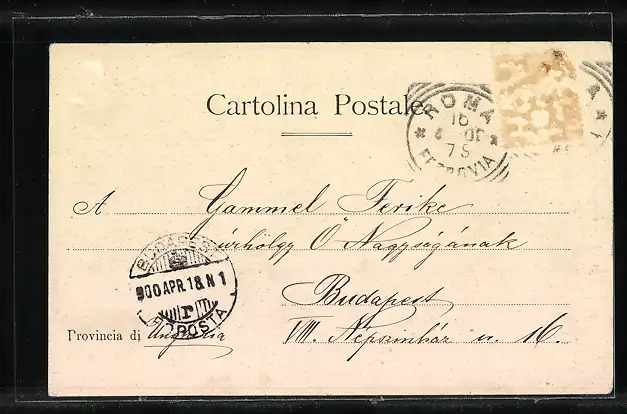 Cartolina Postale
ROMA
16
4 00
7 S
FERROVIA
A Gammel Ferike
úrhölgy Ő Nagyságának
BUDAPEST
900 APR. 18. N 1
POSTA
Budapest
Provincia di Ungheria VIII. Népszinház u. 16.